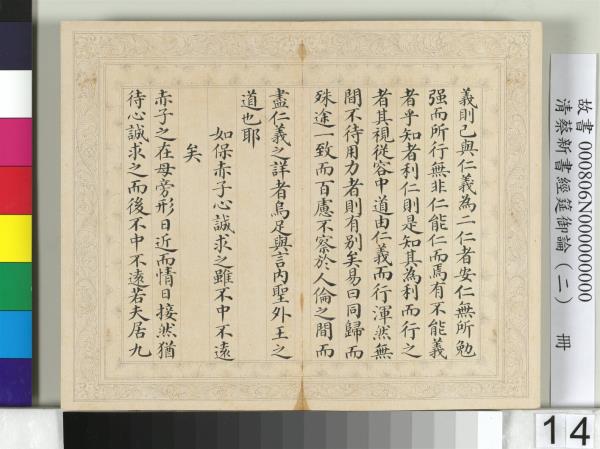 義則已與仁義為二仁者安仁無所勉
强而所行無非仁能仁而焉有不能義
者乎知者利仁則是知其為利而行之
者其視從容中道由仁義而行渾然無
間不待用力者則有别矣易曰同歸而
殊途一致而百慮不察於人倫之間而
盡仁義之詳者烏足與言内聖外王之
道也耶
如保赤子心誠求之雖不中不遠
矣
赤子之在母旁形日近而情日接然猶
待心誠求之而後不中不遠若夫居九
故書 000806N000000000
清蔡新書經筵御論(二) 冊
14